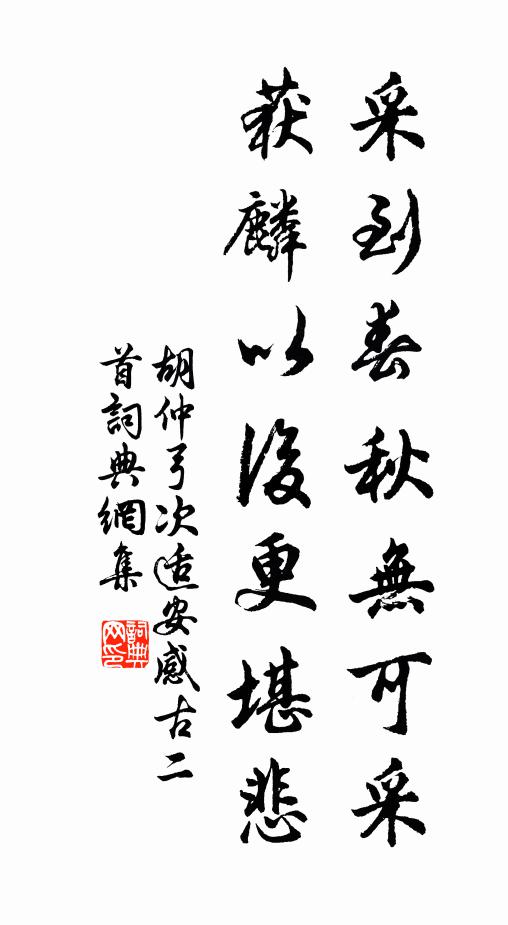 采到春秋無可采
获麟以後更堪悲
胡仲弓次适安感古二
首詞典網集
詞典
网印